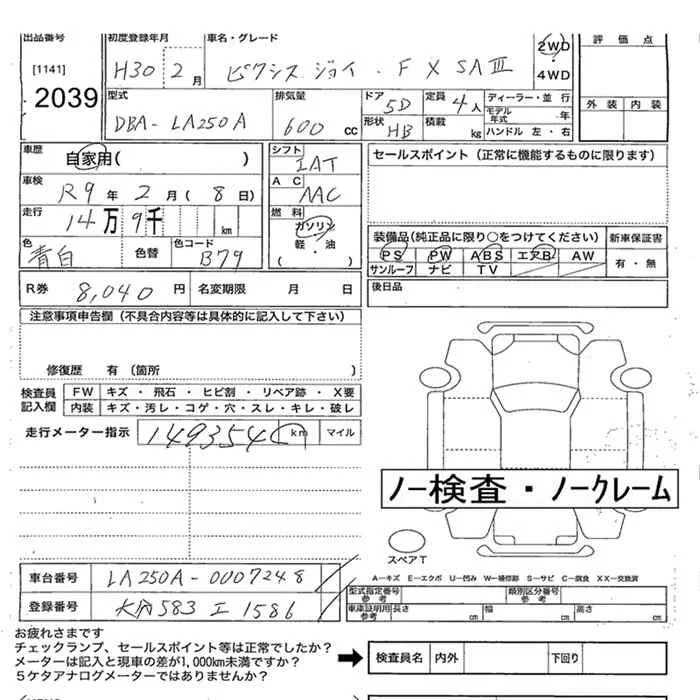 出品番号 初度登録年月 車名・グレード 評価点
[1141] H30 2月 ピクシス ジョイ・F X SAⅢ 2WD・4WD
2039
型式 排気量 ドア 5D 定員 4人 ディーラー・並行 外装 内装
DBA-LA250A 600cc 形状 HB 積載 kg モデル年式 年
ハンドル 左・右
車歴 自家用( ) シフト IAT セールスポイント(正常に機能するものに限ります)
車検 R9年 2月(8日) AC AAC
走行 14万9千 km 燃料 ガソリン 装備品(純正品に限り○をつけてください) 新車保証書
色 青白 色替 色コード B79 軽・油 ( ) PS PW ABS エアB AW 有・無
サンルーフ ナビ TV
R券 8,040円 名変期限 月 日 後日品
注意事項申告欄(不具合内容等は具体的に記入して下さい)
修復歴 有(箇所 )
検査員記入欄 FW キズ・飛石・ヒビ割・リペア跡・X要
内装 キズ・汚レ・コゲ・穴・スレ・キレ・破レ
走行メーター指示 149354 km マイル
ノー検査・ノークレーム
スペアT
車台番号 LA250A-0007248 A-キズ E-エクボ U-凹み W-補修跡 S-サビ C-腐食 XX-交換済
型式指定番号 参考 類別区分番号 参考
登録番号 583 エ 1586 車庫証明用 参考 長さ cm 幅 cm 高さ cm
お疲れさまです
チェックランプ、セールスポイント等は正常でしたか?
メーターは記入と現車の差が1,000km未満ですか? 検査員名 内外 下回り
5ケタアナログメーターではありませんか?